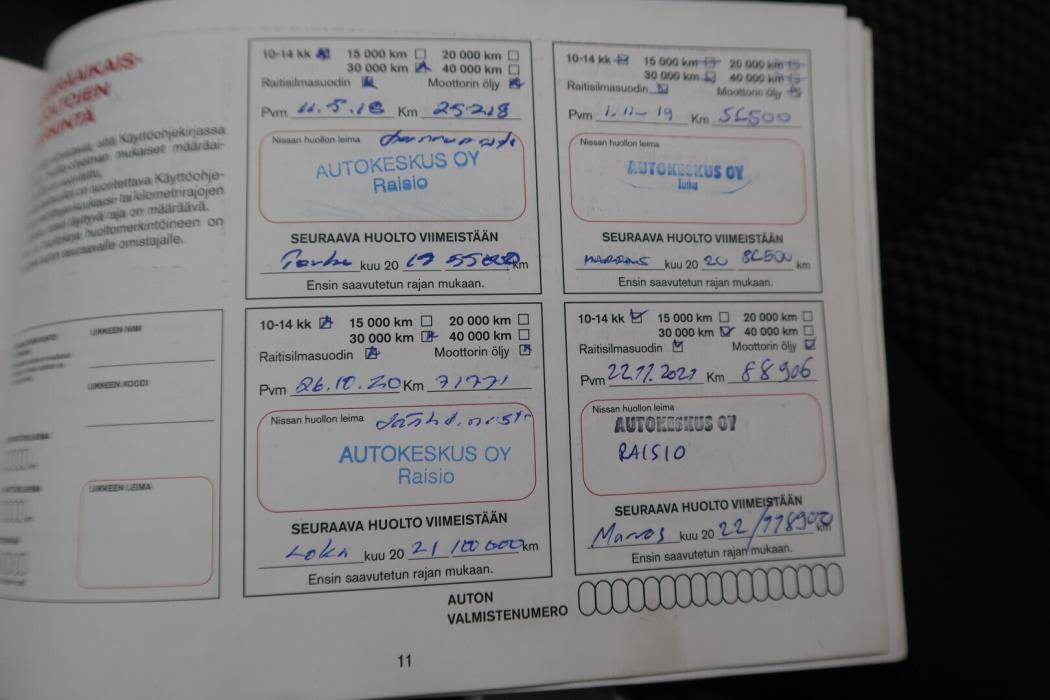 Käyttöohjekirjassa
mukaiset määräai-
suoritettava Käyttöohje-
tai kilometrirajojen
täyttyvä raja on määräävä.
huoltomerkintöineen on
seuraavalle omistajalle.
LIIKKEEN NIMI
LIIKKEEN KOODI
LIIKKEEN LEIMA
10-14 kk 15 000 km 20 000 km
30 000 km 40 000 km
Raitisilmasuodin Moottorin öljy
Pvm 11.5.18 Km 25218
Nissan huollon leima
AUTOKESKUS OY
Raisio
SEURAAVA HUOLTO VIIMEISTÄÄN
kuu 20 19 55000 km
Ensin saavutetun rajan mukaan.
10-14 kk 15 000 km 20 000 km
30 000 km 40 000 km
Raitisilmasuodin Moottorin öljy
Pvm 1.11-19 Km 56500
Nissan huollon leima
AUTOKESKUS OY
SEURAAVA HUOLTO VIIMEISTÄÄN
kuu 20 20 86500 km
Ensin saavutetun rajan mukaan.
10-14 kk 15 000 km 20 000 km
30 000 km 40 000 km
Raitisilmasuodin Moottorin öljy
Pvm 26.10.20 Km 71771
Nissan huollon leima
AUTOKESKUS OY
Raisio
SEURAAVA HUOLTO VIIMEISTÄÄN
Loka kuu 20 21 / 100 000 km
Ensin saavutetun rajan mukaan.
10-14 kk 15 000 km 20 000 km
30 000 km 40 000 km
Raitisilmasuodin Moottorin öljy
Pvm 22.11.2021 Km 88906
Nissan huollon leima
AUTOKESKUS OY
RAISIO
SEURAAVA HUOLTO VIIMEISTÄÄN
Marras kuu 20 22 / 118900 km
Ensin saavutetun rajan mukaan.
AUTON
VALMISTENUMERO
11